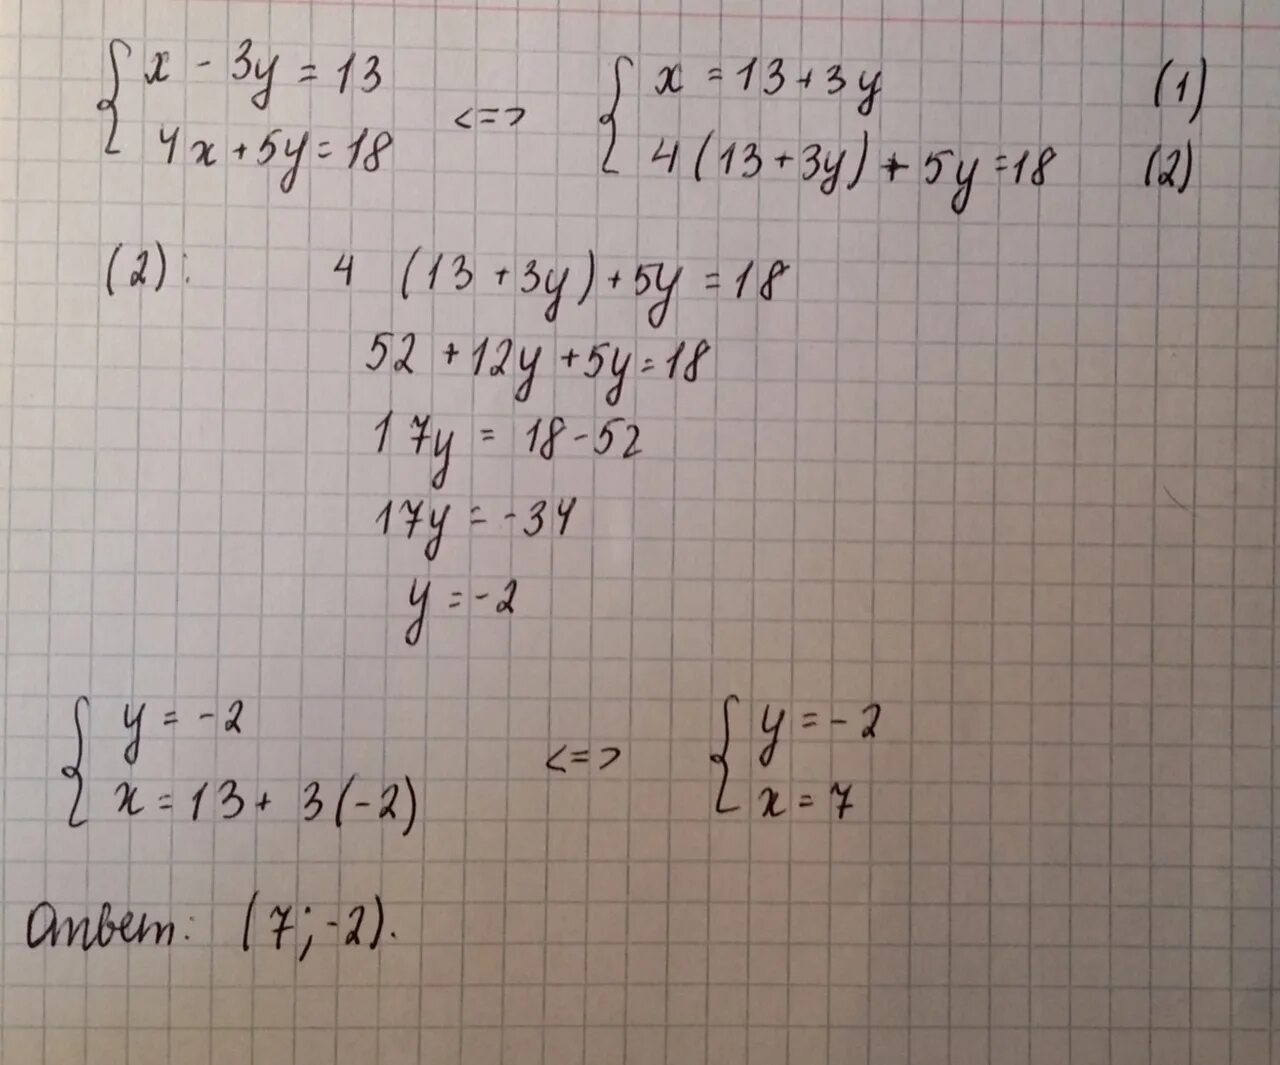 { x - 3y = 13 <=> { x = 13 + 3y (1)
4x + 5y = 18 4(13 + 3y) + 5y = 18 (2)
(2): 4 (13 + 3y) + 5y = 18
52 + 12y + 5y = 18
17y = 18 - 52
17y = -34
y = -2
{ y = -2 <=> { y = -2
x = 13 + 3(-2) x = 7
Ответ: (7; -2).